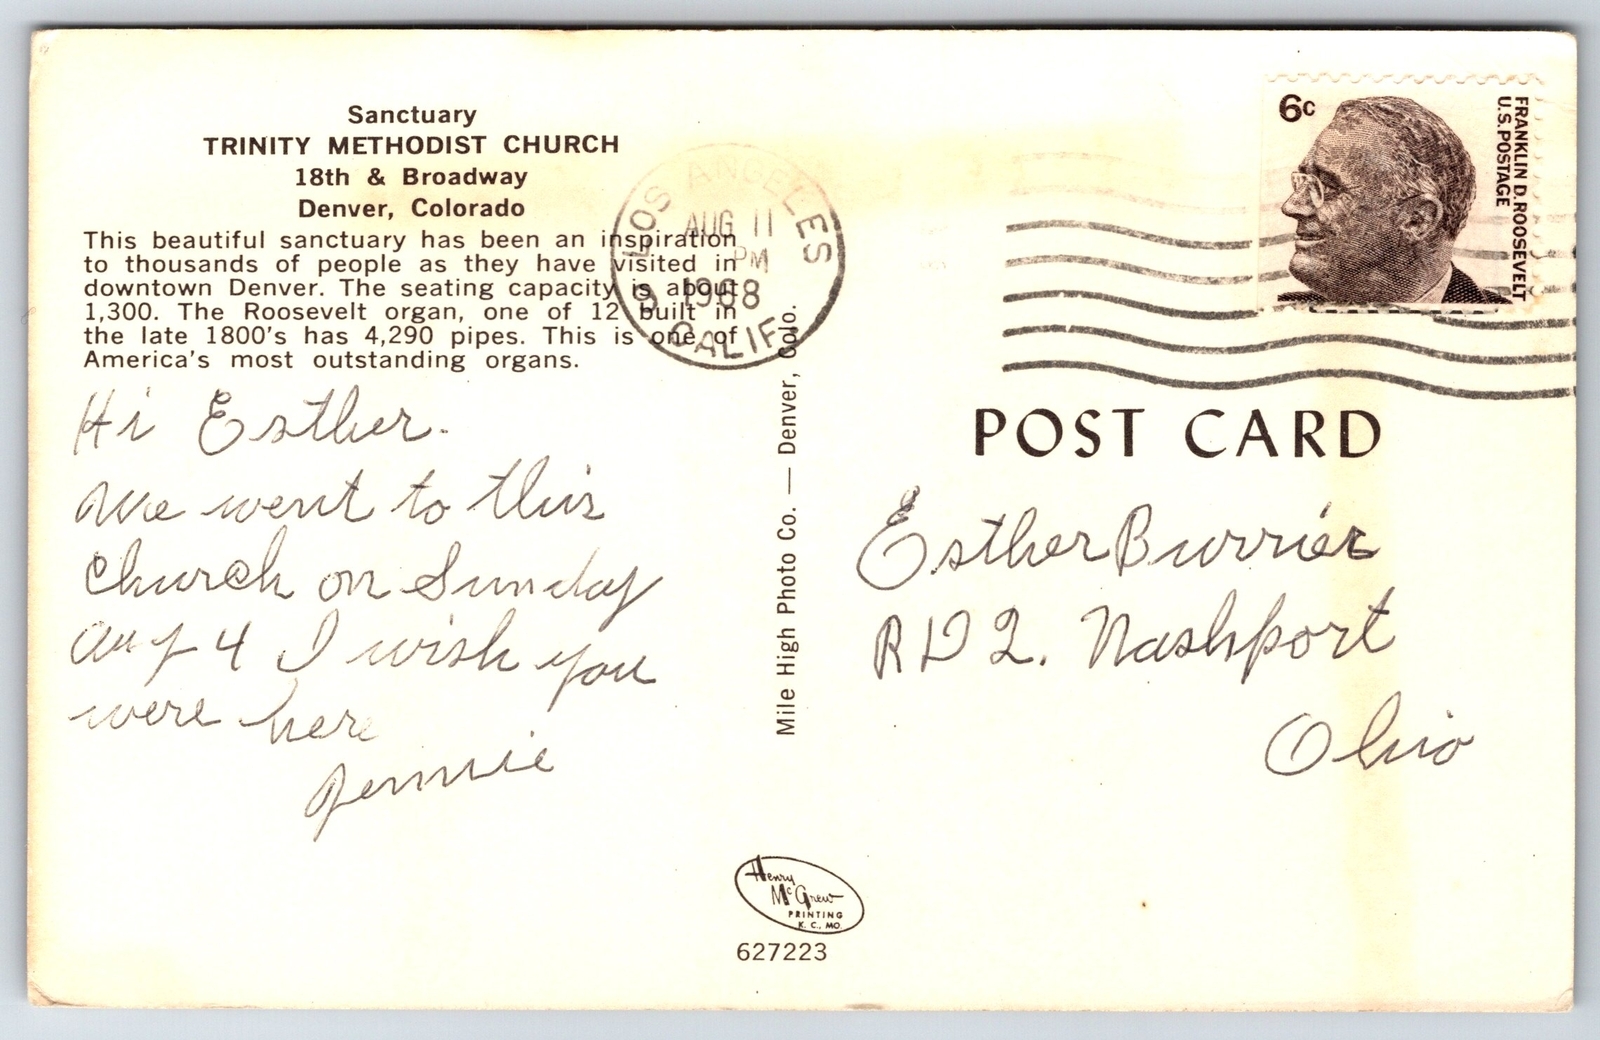 Sanctuary
TRINITY METHODIST CHURCH
18th & Broadway
Denver, Colorado
This beautiful sanctuary has been an inspiration
to thousands of people as they have visited in
downtown Denver. The seating capacity is about
1,300. The Roosevelt organ, one of 12 built in
the late 1800's has 4,290 pipes. This is one of
America's most outstanding organs.
Hi Esther.
We went to this
Church on Sunday
Aug 4 I wish you
were here
Jennie
LOS ANGELES
AUG 11
PM
1968
CALIF
Mile High Photo Co. — Denver, Colo.
6c
FRANKLIN D. ROOSEVELT
U.S. POSTAGE
POST CARD
Esther Burrier
RD 2. Nashport
Ohio
Henry
McGrew
PRINTING
K. C., MO.
627223